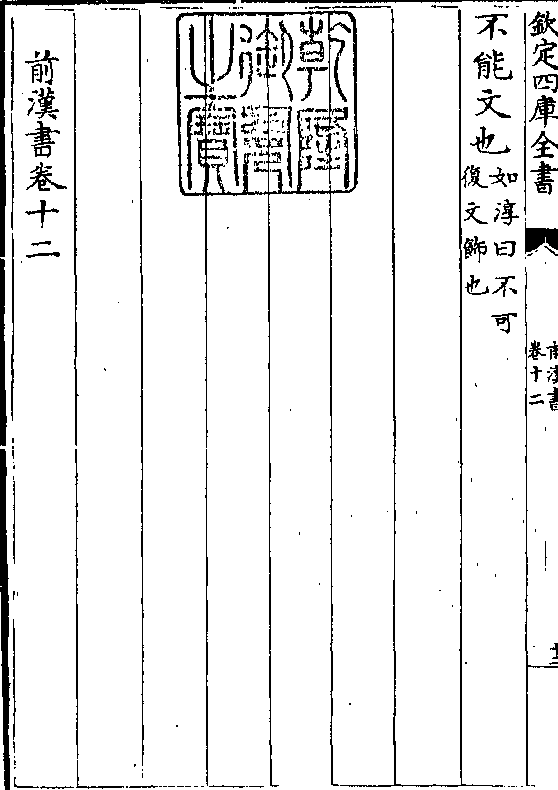 欽定四庫全書
前漢書
卷十二
不能文也
如淳曰不可
復文飾也
乾隆
御覽
之寶
前漢書卷十二